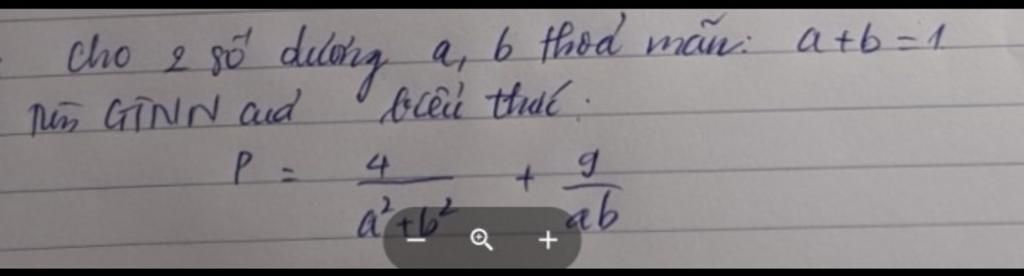 Cho 2 số dương a, b thoả mãn: a+b=1
Tìm GTNN của biểu thức:
P = 4/(a²+b²) + 9/(ab)